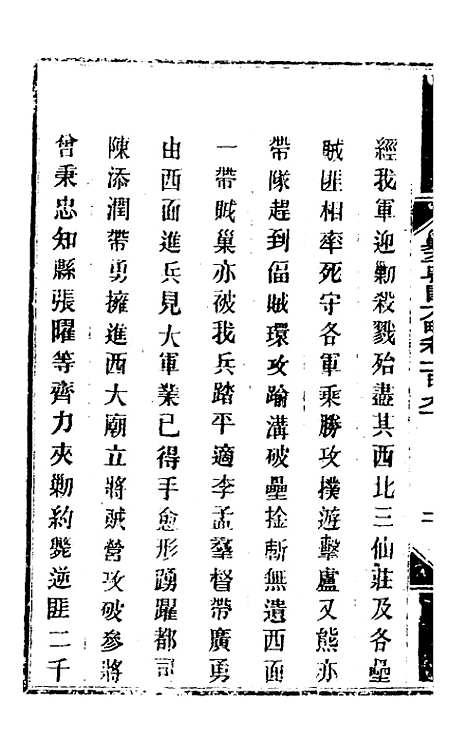 經我軍迎勦殺戮殆盡其西北三仙莊及各壘
賊匪相率死守各軍乘勝攻撲遊擊盧又熊亦
帶隊趕到偪賊環攻踰溝破壘擒斬無遺西面
一帶賊巢亦被我兵踏平適李孟羣督帶廣勇
由西面進兵見大軍業已得手愈形踴躍都司
陳添潤帶勇擁進西大廟立將賊營攻破參將
曾秉忠知縣張曜等齊力夾勦約斃逆匪二千